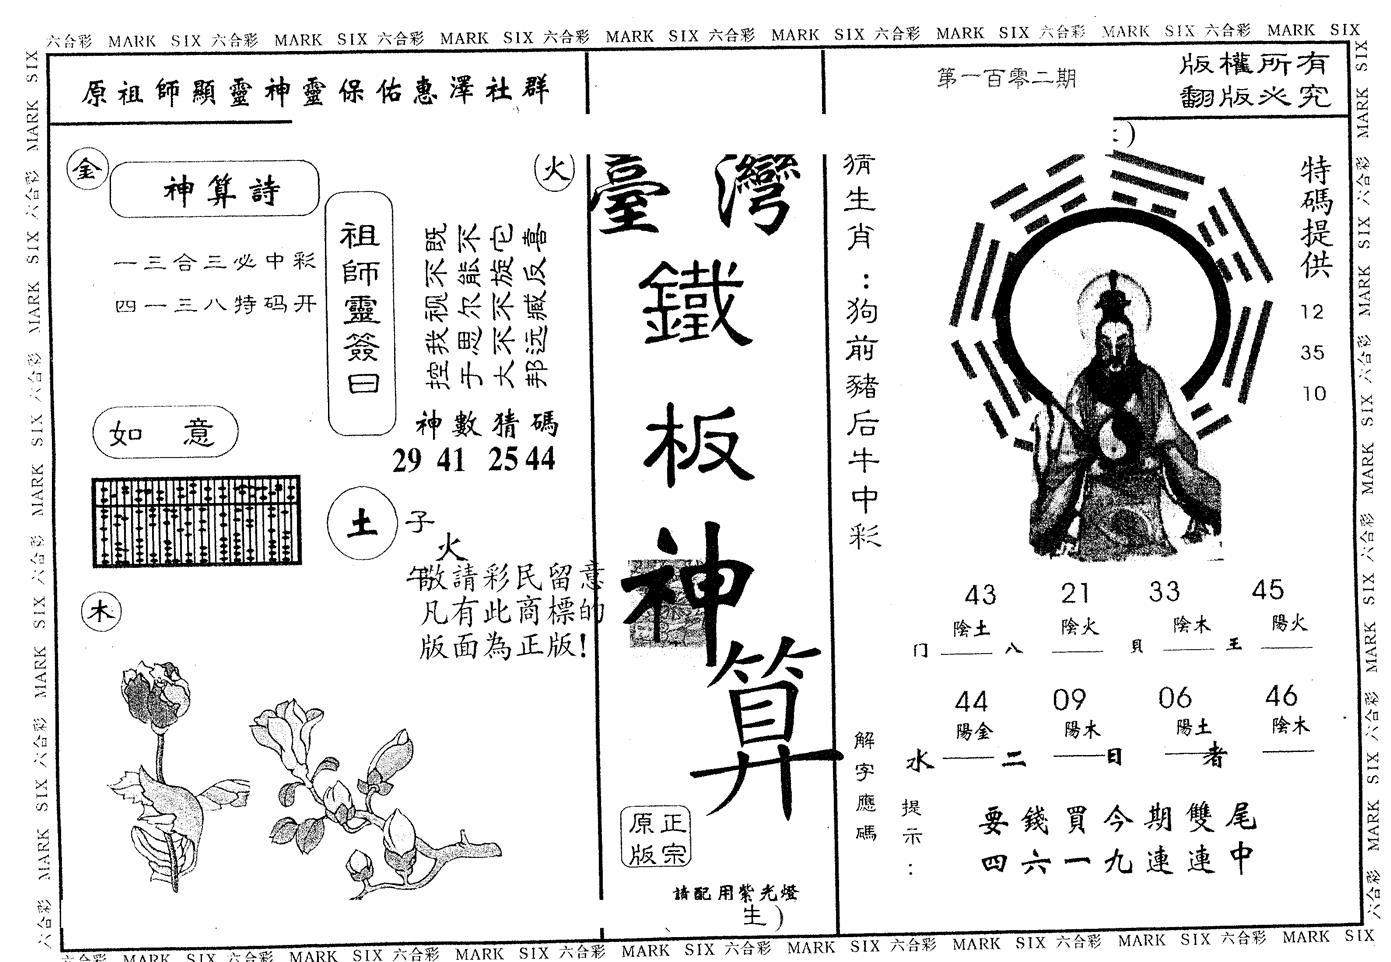 六合彩 MARK SIX 六合彩 MARK SIX 六合彩 MARK SIX 六合彩 MARK SIX 六合彩 MARK SIX 六合彩 MARK SIX 六合彩 MARK SIX 六合彩 MARK SIX
原祖師顯靈神靈保佑惠澤社群
第一百零二期
版權所有
翻版必究
金
神算詩
一三合三必中彩
四一三八特码开
火
祖師靈簽曰
既不视我控
不能尔思于
它旋不不大
喜反臧远邦
神數猜碼
29 41 25 44
如意
土
子
火
午
敬請彩民留意
凡有此商標的
版面為正版!
木
臺灣
鐵板神算
正宗
原版
請配用紫光燈
生)
猜生肖:狗前豬后牛中彩
特碼提供
12
35
10
43 21 33 45
陰土 陰火 陰木 陽火
门 八 貝 王
44 09 06 46
陽金 陽木 陽土 陰木
水 二 日 者
解字應碼
提示:
要錢買今期雙尾
四六一九連連中
六合彩 MARK SIX 六合彩 MARK SIX 六合彩 MARK SIX 六合彩 MARK SIX 六合彩 MARK SIX 六合彩 MARK SIX 六合彩 MARK SIX 六合彩 MARK SIX